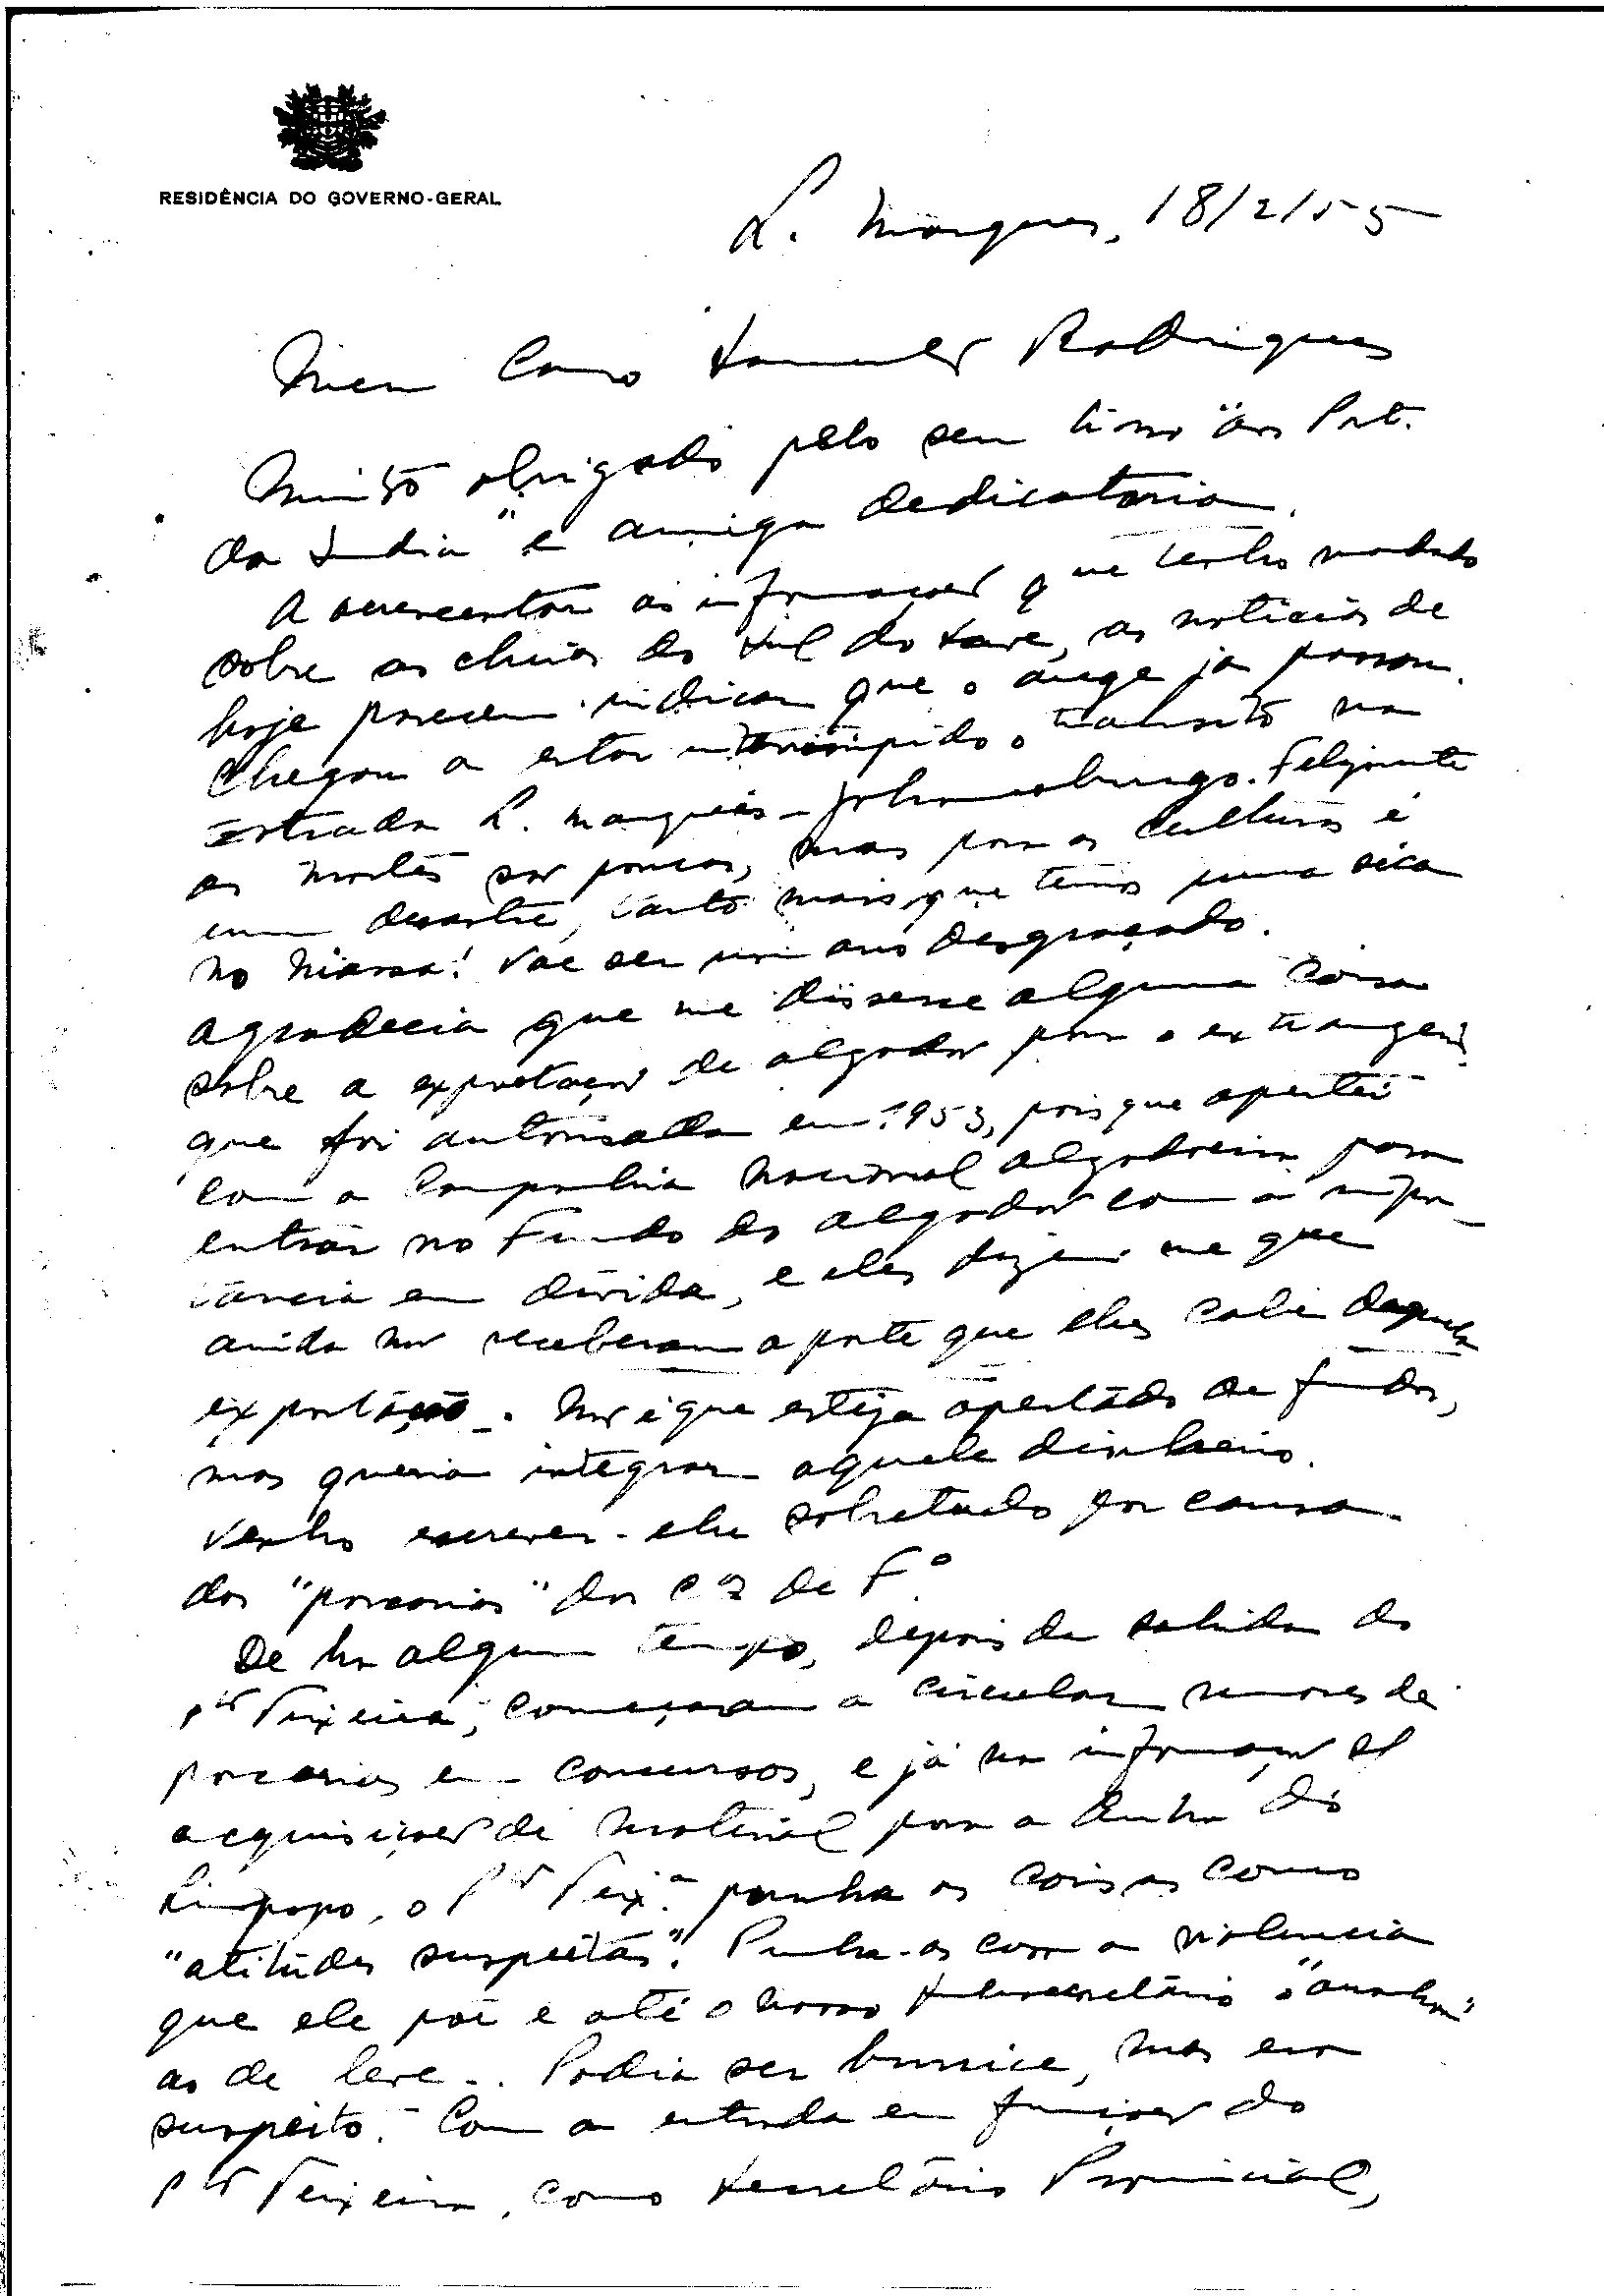 RESIDÊNCIA DO GOVERNO-GERAL
L. Marques, 18/2/55
Meu Caro Sarmento Rodrigues
Muito obrigado pelo seu livro "aos Port.
da India" e amiga dedicatoria.
A acrescentar ás informações que tenho mandado
sobre as cheias do Sul do Save, as noticias de
hoje parecem indicar que o auge já passou.
Chegou a estar interrompido o transito na
estrada L. Marques - Johannesburgo. Felizmente
as mortes são poucas, mas para as culturas é
um desastre, tanto mais que temos uma sêca
no Niassa! Vae ser um ano desgraçado.
Agradecia que me dissesse alguma coisa
sobre a exportação de algodão para o extrangeiro
que foi autorisada em 1953, pois que apertei
com a Companhia Nacional Algodoeira para
entrar no Fundo do Algodão com a impor-
tancia em divida, e eles dizem-me que
ainda não receberam a parte que lhes cabe daquela
exportação. Não é que esteja apertado de fundos,
mas queria integrar aquele dinheiro.
Venho escrever-lhe sobretudo por causa
das "porcarias" dos C.os de F.o
De ha algum tempo, depois da saida do
P.to Teixeira, começaram a circular rumores de
porcarias em concursos, e já na informação s/
acquisições de material para a linha do
Limpopo, o P.to Teix.a punha as coisas como
"atitudes suspeitas". Punha-as com a violencia
que ele põe e até o nosso Subsecretário
as de leve.. Podia ser burrice, mas era
suspeito. Com a entrada em funções do
P.to Teixeira, como Secretário Provincial,